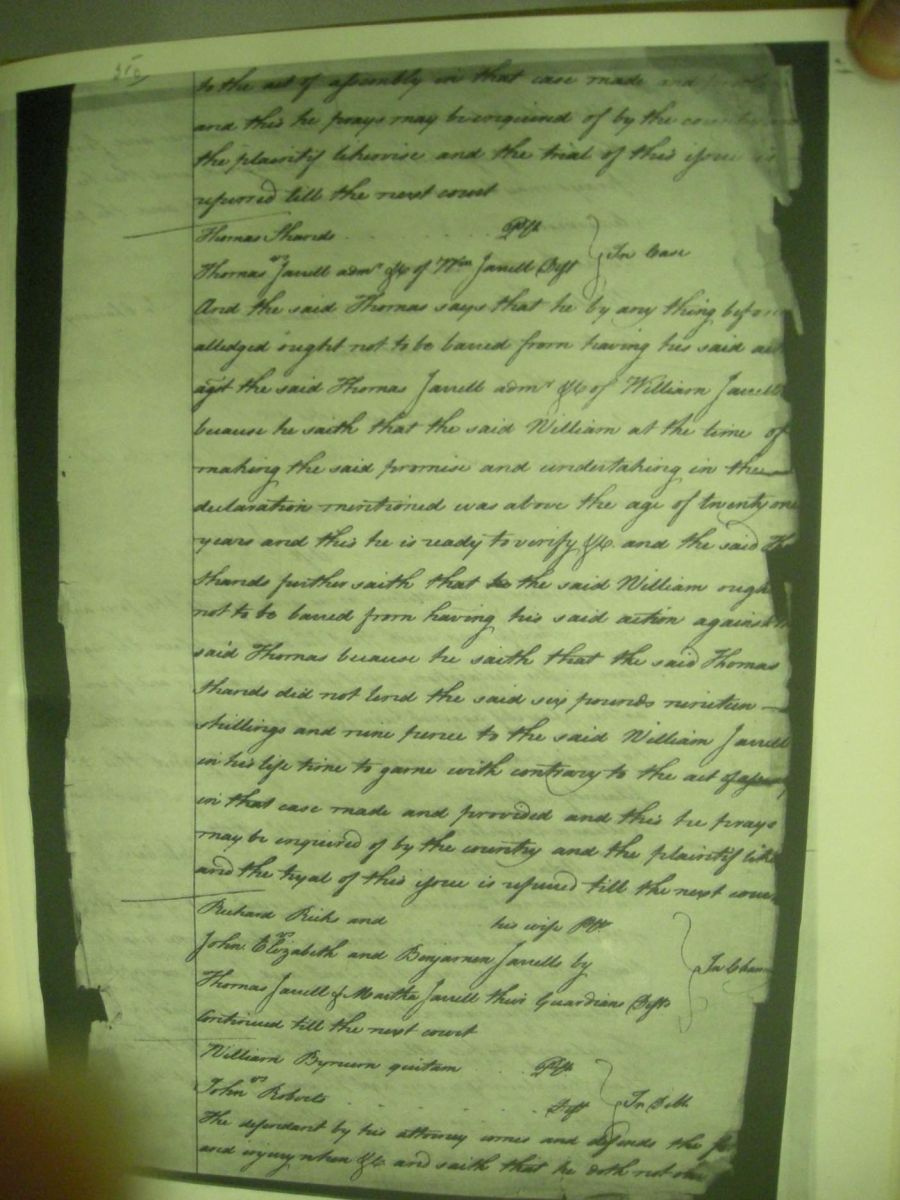 to the act of assembly in that case made and
and this he prays may be inquired of by the country and
the plaintif likewise and the trial of this issue is
referred till the next court
Thomas Shands . . . . . . Plft
vs
Thomas Jarrell admr. &c of Wm Jarrell Deft
In Case
And the said Thomas says that he by any thing before
alledged ought not to be barred from having his said
agst the said Thomas Jarrell admr &c of William Jarrell
because he saith that the said William at the time of
making the said promise and undertaking in the
declaration mentioned was above the age of twenty one
years and this he is ready to verify &c. and the said
Shands further saith that the said William
not to be barred from having his said action against
said Thomas because he saith that the said Thomas
Shands did not lend the said six pounds nineteen
shillings and nine pence to the said William Jarrell
in his life time to game with contrary to the act of
in that case made and provided and this he prays
may be inquired of by the country and the plaintif
and the tryal of this issue is referred till the next
Richard Ricks and his wife Plfts
vs
John Elizabeth and Benjamen Jarrells by
Thomas Jarrell & Martha Jarrell their Guardians Defts
In
Continued till the next court
William Bynum quitam . . Plft
vs
John Roberts . . . . . Deft
In Debt
The defendant by his attorney comes and defends the
and injury when &c and saith that he doth not